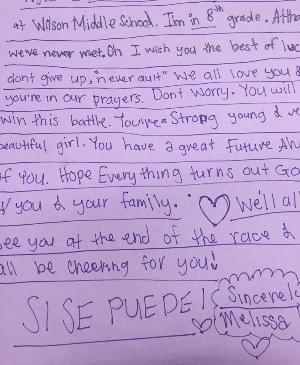 at Wilson Middle School. I'm in 8th grade. Altho
we've never met. Oh I wish you the best of luc
dont give up, "never quit" We all love you &
you're in our prayers. Dont worry. You will
win this battle. You're a Strong young & ve
beautiful girl. You have a great Future Ah
of You. Hope Everything turns out Go
w/ you & your family. We'll al
see you at the end of the race &
all be cheering for you!
SI SE PUEDE!
Sincerel
Melissa